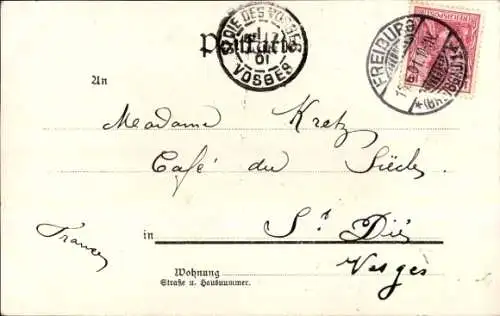 Postkarte
ST DIE DES VOSGES
01
VOSGES
FREIBURG
An
Madame Kretz
Café du Siècle
France
in St Dié
Vosges
Wohnung
Straße u. Hausnummer.